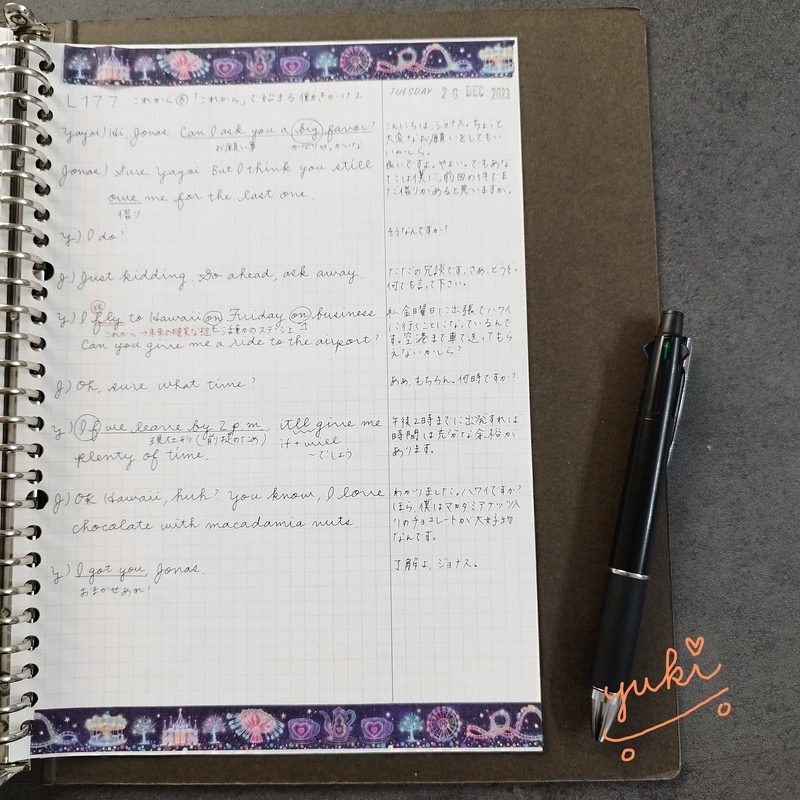 L177 これから 「これから」で始まる働きかけ2
TUESDAY 26 DEC 2023
Yayoi) Hi, Jonas. Can I ask you a big favor?
お願い事
こんにちは、ジョナス。ちょっと
大変なお願いをしてもい
いかしら。
Jonas) Sure, Yayoi. But I think you still
owe me for the last one.
借り
良いですよ。やよい。でもあな
たは僕に、前回の件でま
だ借りがあると思いますか。
Y) I do?
そうなんですか?
J) Just kidding. Go ahead, ask away.
ただの冗談です。さあ、どうぞ。
何でも言って下さい。
Y) I fly to Hawaii on Friday on business.
これから→未来の確実な程 活動のステージ上
Can you give me a ride to the airport?
私、金曜日に出張でハワイ
に行くことになっているんで
す。空港まで車で送ってもら
えないかしら?
J) Oh, sure what time?
ああ、もちろん。何時ですか?
Y) If we leave by 2 p.m, it'll give me
現在形(前提のため)
if + will
plenty of time.
〜でしょう
午後2時までに出発すれば
時間は充分な余裕が
あります。
J) OK Hawaii, huh? You know, I love
chocolate with macadamia nuts.
わかりました。ハワイですか?
ほら、僕はマカダミアナッツ入
りのチョコレートが大好物
なんです。
Y) I got you, Jonas.
おまかせあれ!
了解よ、ジョナス。
yuki